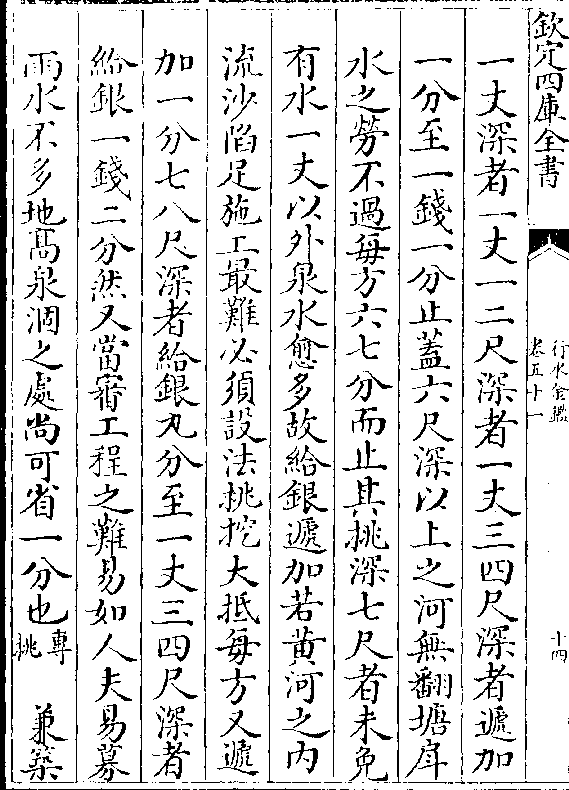 欽定四庫全書
行水金鑑
卷五十一
十四
一丈深者一丈一二尺深者一丈三四尺深者遞加
一分至一錢一分止蓋六尺深以上之河無翻塘戽
水之勞不過每方六七分而止其挑深七尺者未免
有水一丈以外泉水愈多故給銀遞加若黄河之内
流沙陷足施工最難必須設法挑挖大抵每方又遞
加一分七八尺深者給銀九分至一丈三四尺深者
給銀一錢二分然又當審工程之難易如人夫易募
雨水不多地髙泉涸之處尚可省一分也專挑 兼築